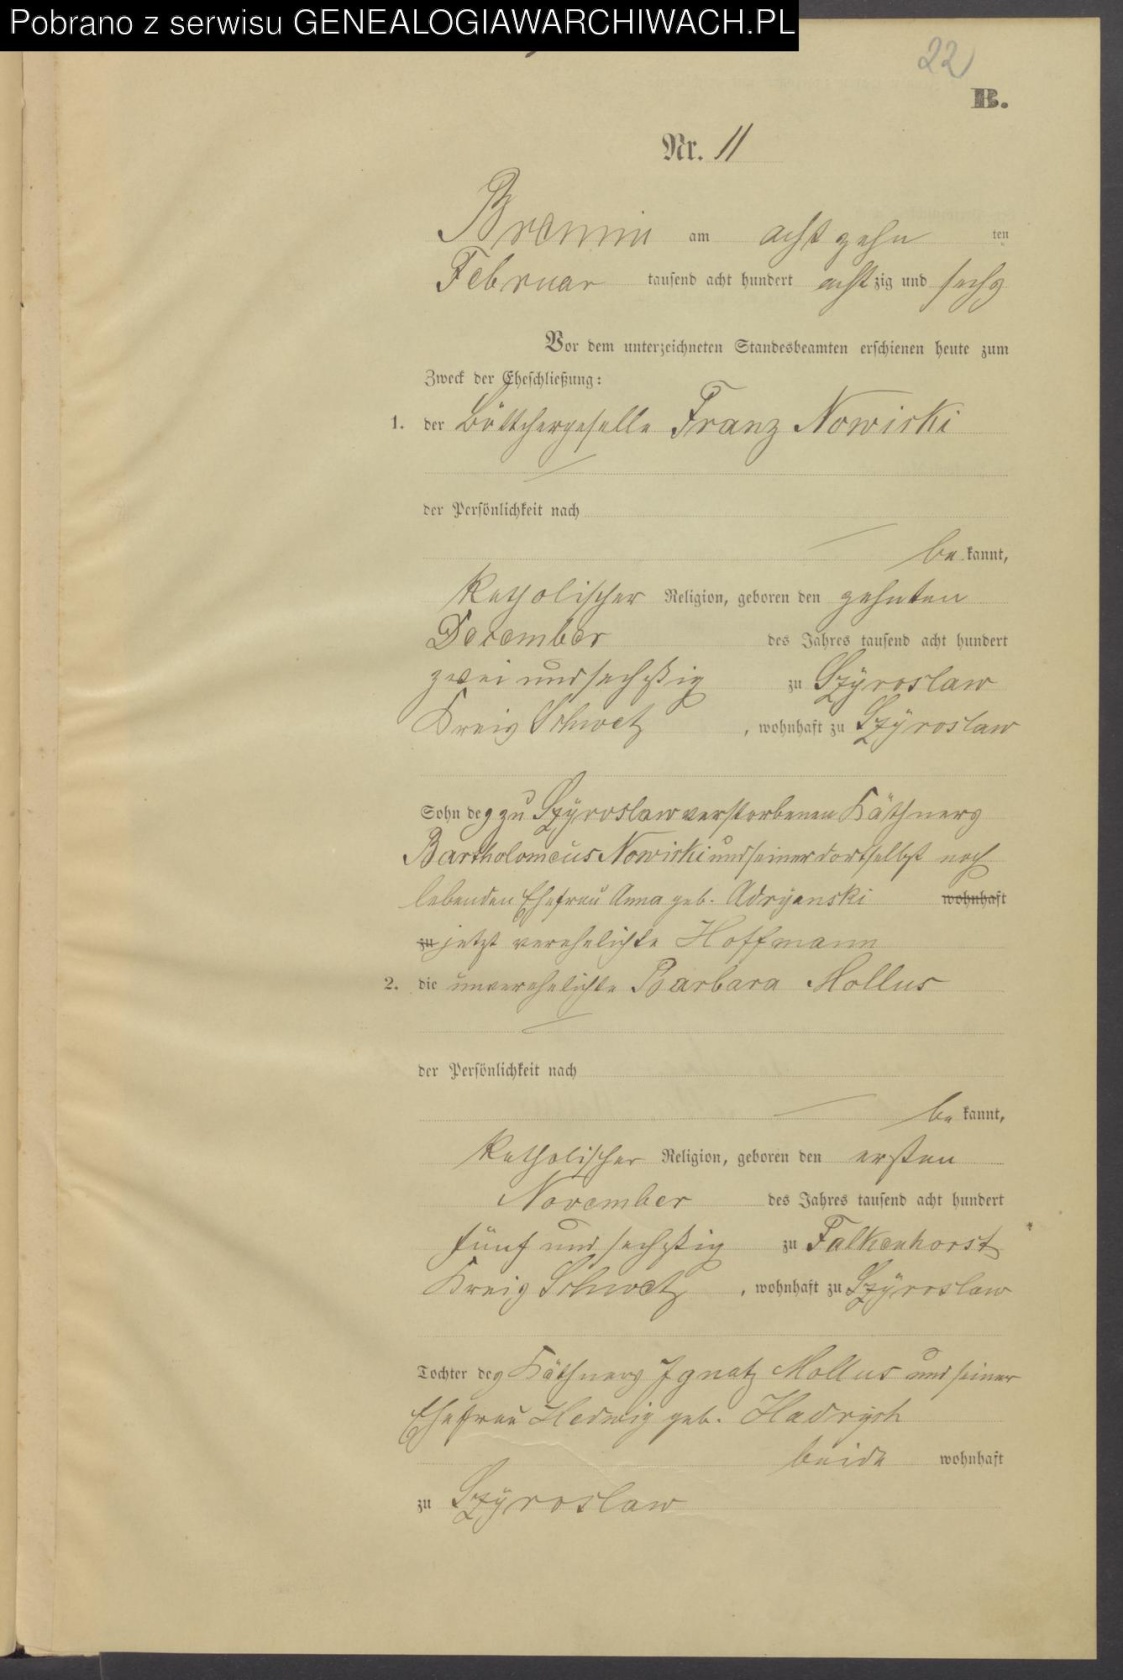 Pobrano z serwisu GENEALOGIAWARCHIWACH.PL
22
B.
Nr. 11
Bremin am achtzehn ten
Februar tausend acht hundert achtzig und sechs
Vor dem unterzeichneten Standesbeamten erschienen heute zum
Zweck der Eheschließung:
1. der Böttchergeselle Franz Nowiski
der Persönlichkeit nach
be kannt,
katholischer Religion, geboren den zehnten
December des Jahres tausend acht hundert
zwei und sechszig zu Szÿroslaw
Kreis Schwetz, wohnhaft zu Szÿroslaw
Sohn des zu Szÿroslaw verstorbenen Käthners
Bartholomeus Nowiski und seiner dortselbst noch
lebenden Ehefrau Anna geb. Adrÿanski wohnhaft
zu jetzt verehelichte Hoffmann
2. die unverehelichte Barbara Mollus
der Persönlichkeit nach
be kannt,
katholischer Religion, geboren den ersten
November des Jahres tausend acht hundert
fünf und sechszig zu Falkenhorst
Kreis Schwetz, wohnhaft zu Szÿroslaw
Tochter des Käthners Ignatz Mollus und seiner
Ehefrau Hedwig geb. Hadrÿch
beide wohnhaft
zu Szÿroslaw